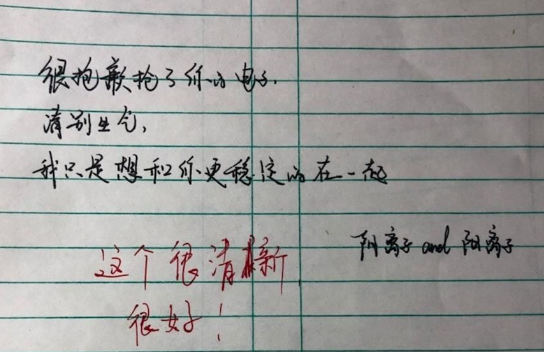 很抱歉抢了你的电子.
请别生气,
我只是想和你更稳定的在一起
阴离子 and 阳离子
这个很清新
很好!